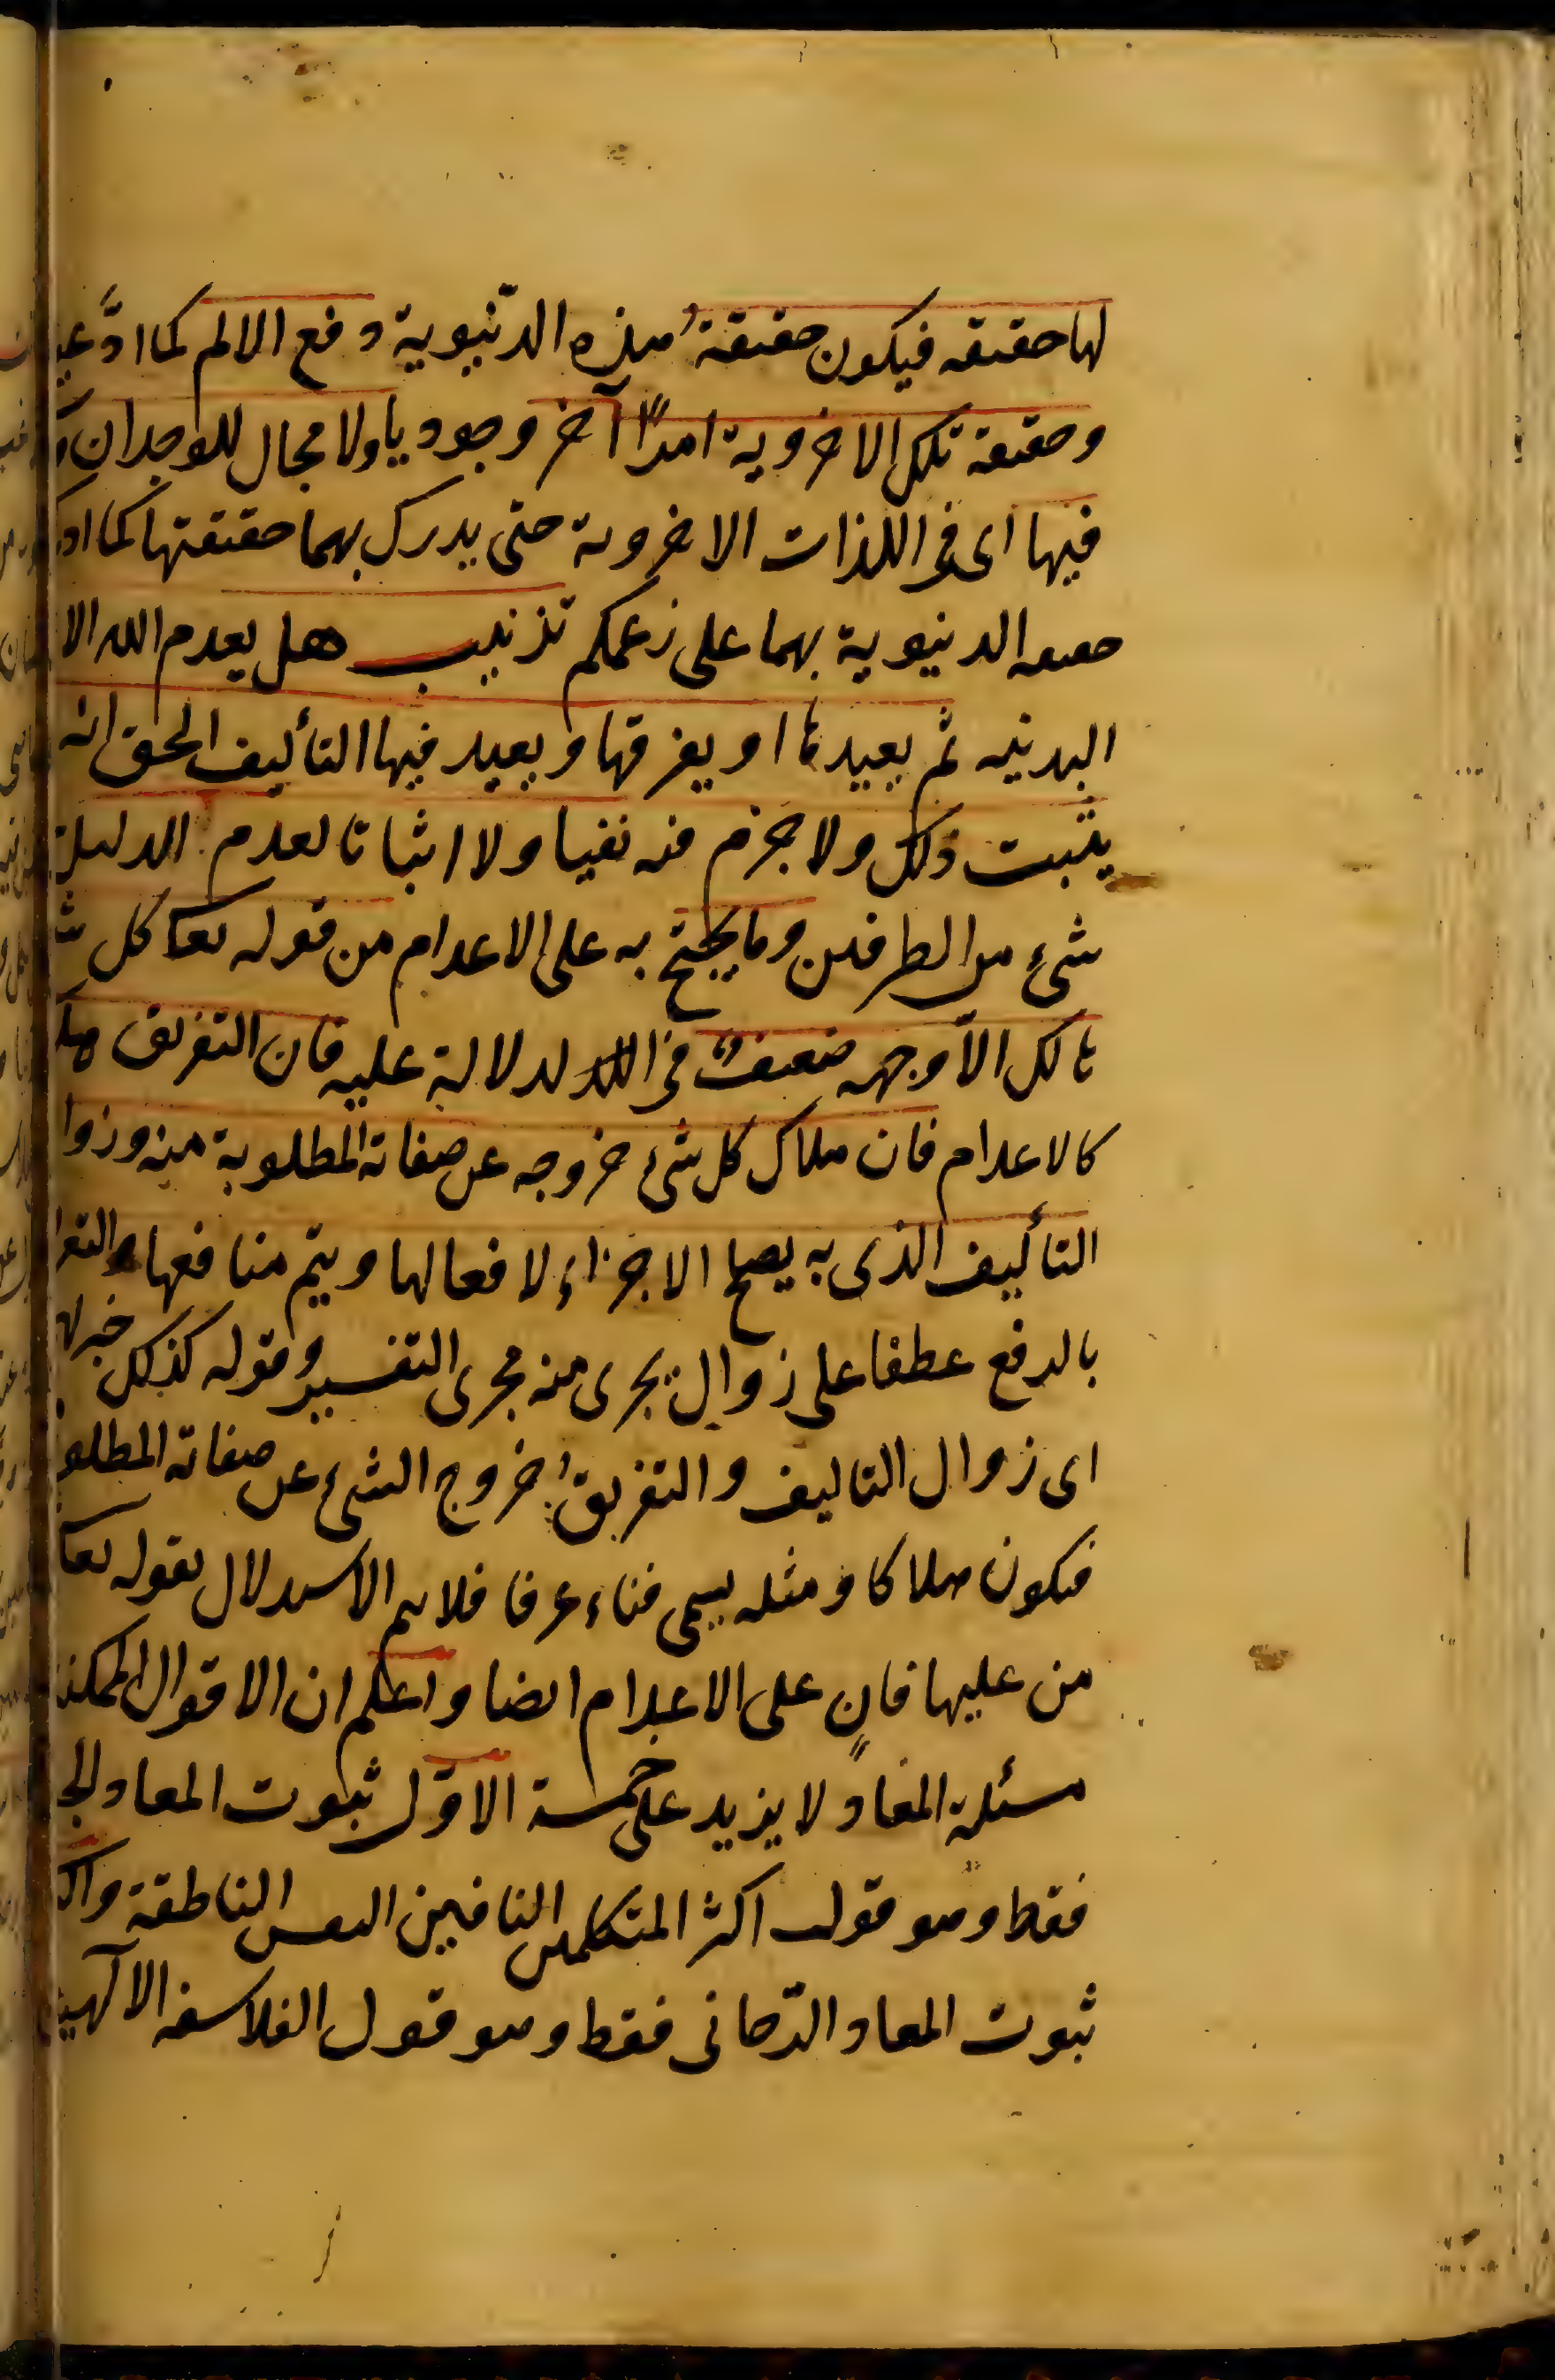 لها حقيقه فيكون حقيقة هذه الدّنيوية دفع الالم كما ادّعيـ
وحقيقة تلك الاخروية امراً آخر وجوديا ولا مجال للوجدان و
فيها اى فى اللذات الاخروية حتى يدرك بهما حقيقتها كما اد
حقيقه الدنيوية بهما على زعمكم تذنيب هل يعدم الله الا
البدنيه ثم يعيدها او يفرقها ويعيد فيها التأليف الحق انه
يثبت ذلك ولا جزم فيه نفيا ولا اثباتا لعدم الدليل
شىء من الطرفين وما يحتج به على الاعدام من قوله تعا كل شـ
هالك الا وجهه ضعيفٌ فى الدلالة عليه فان التفريق هلا
كالاعدام فان هلاك كل شىء خروجه عن صفاته المطلوبة منه وزوا
التأليف الذى به يصلح الاجزاء لافعالها ويتم منافعها والتفر
بالرفع عطفا على زوال يجرى منه مجرى التفسير وقوله كذلك خبر لا
اى زوال التاليف والتفريق خروج الشىء عن صفاته المطلو
فيكون هلاكا ومثله يسمى فناء عرفا فلا يتم الاستدلال بقوله تعا
من عليها فانٍ على الاعدام ايضا واعلم ان الاقوال الممكنة
مسئلة المعاد لا يزيد على خمسة الاوّل ثبوت المعاد الجـ
فقط وهو قول اكثر المتكلمين النافين النفس الناطقة والـ
ثبوت المعاد الرّحانى فقط وهو قول الفلاسفه الآلهيـ